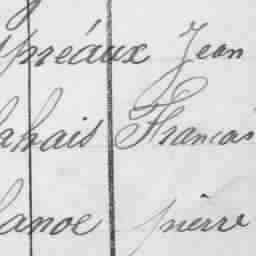 préaux Jean
ahais Francois
anoe pierre